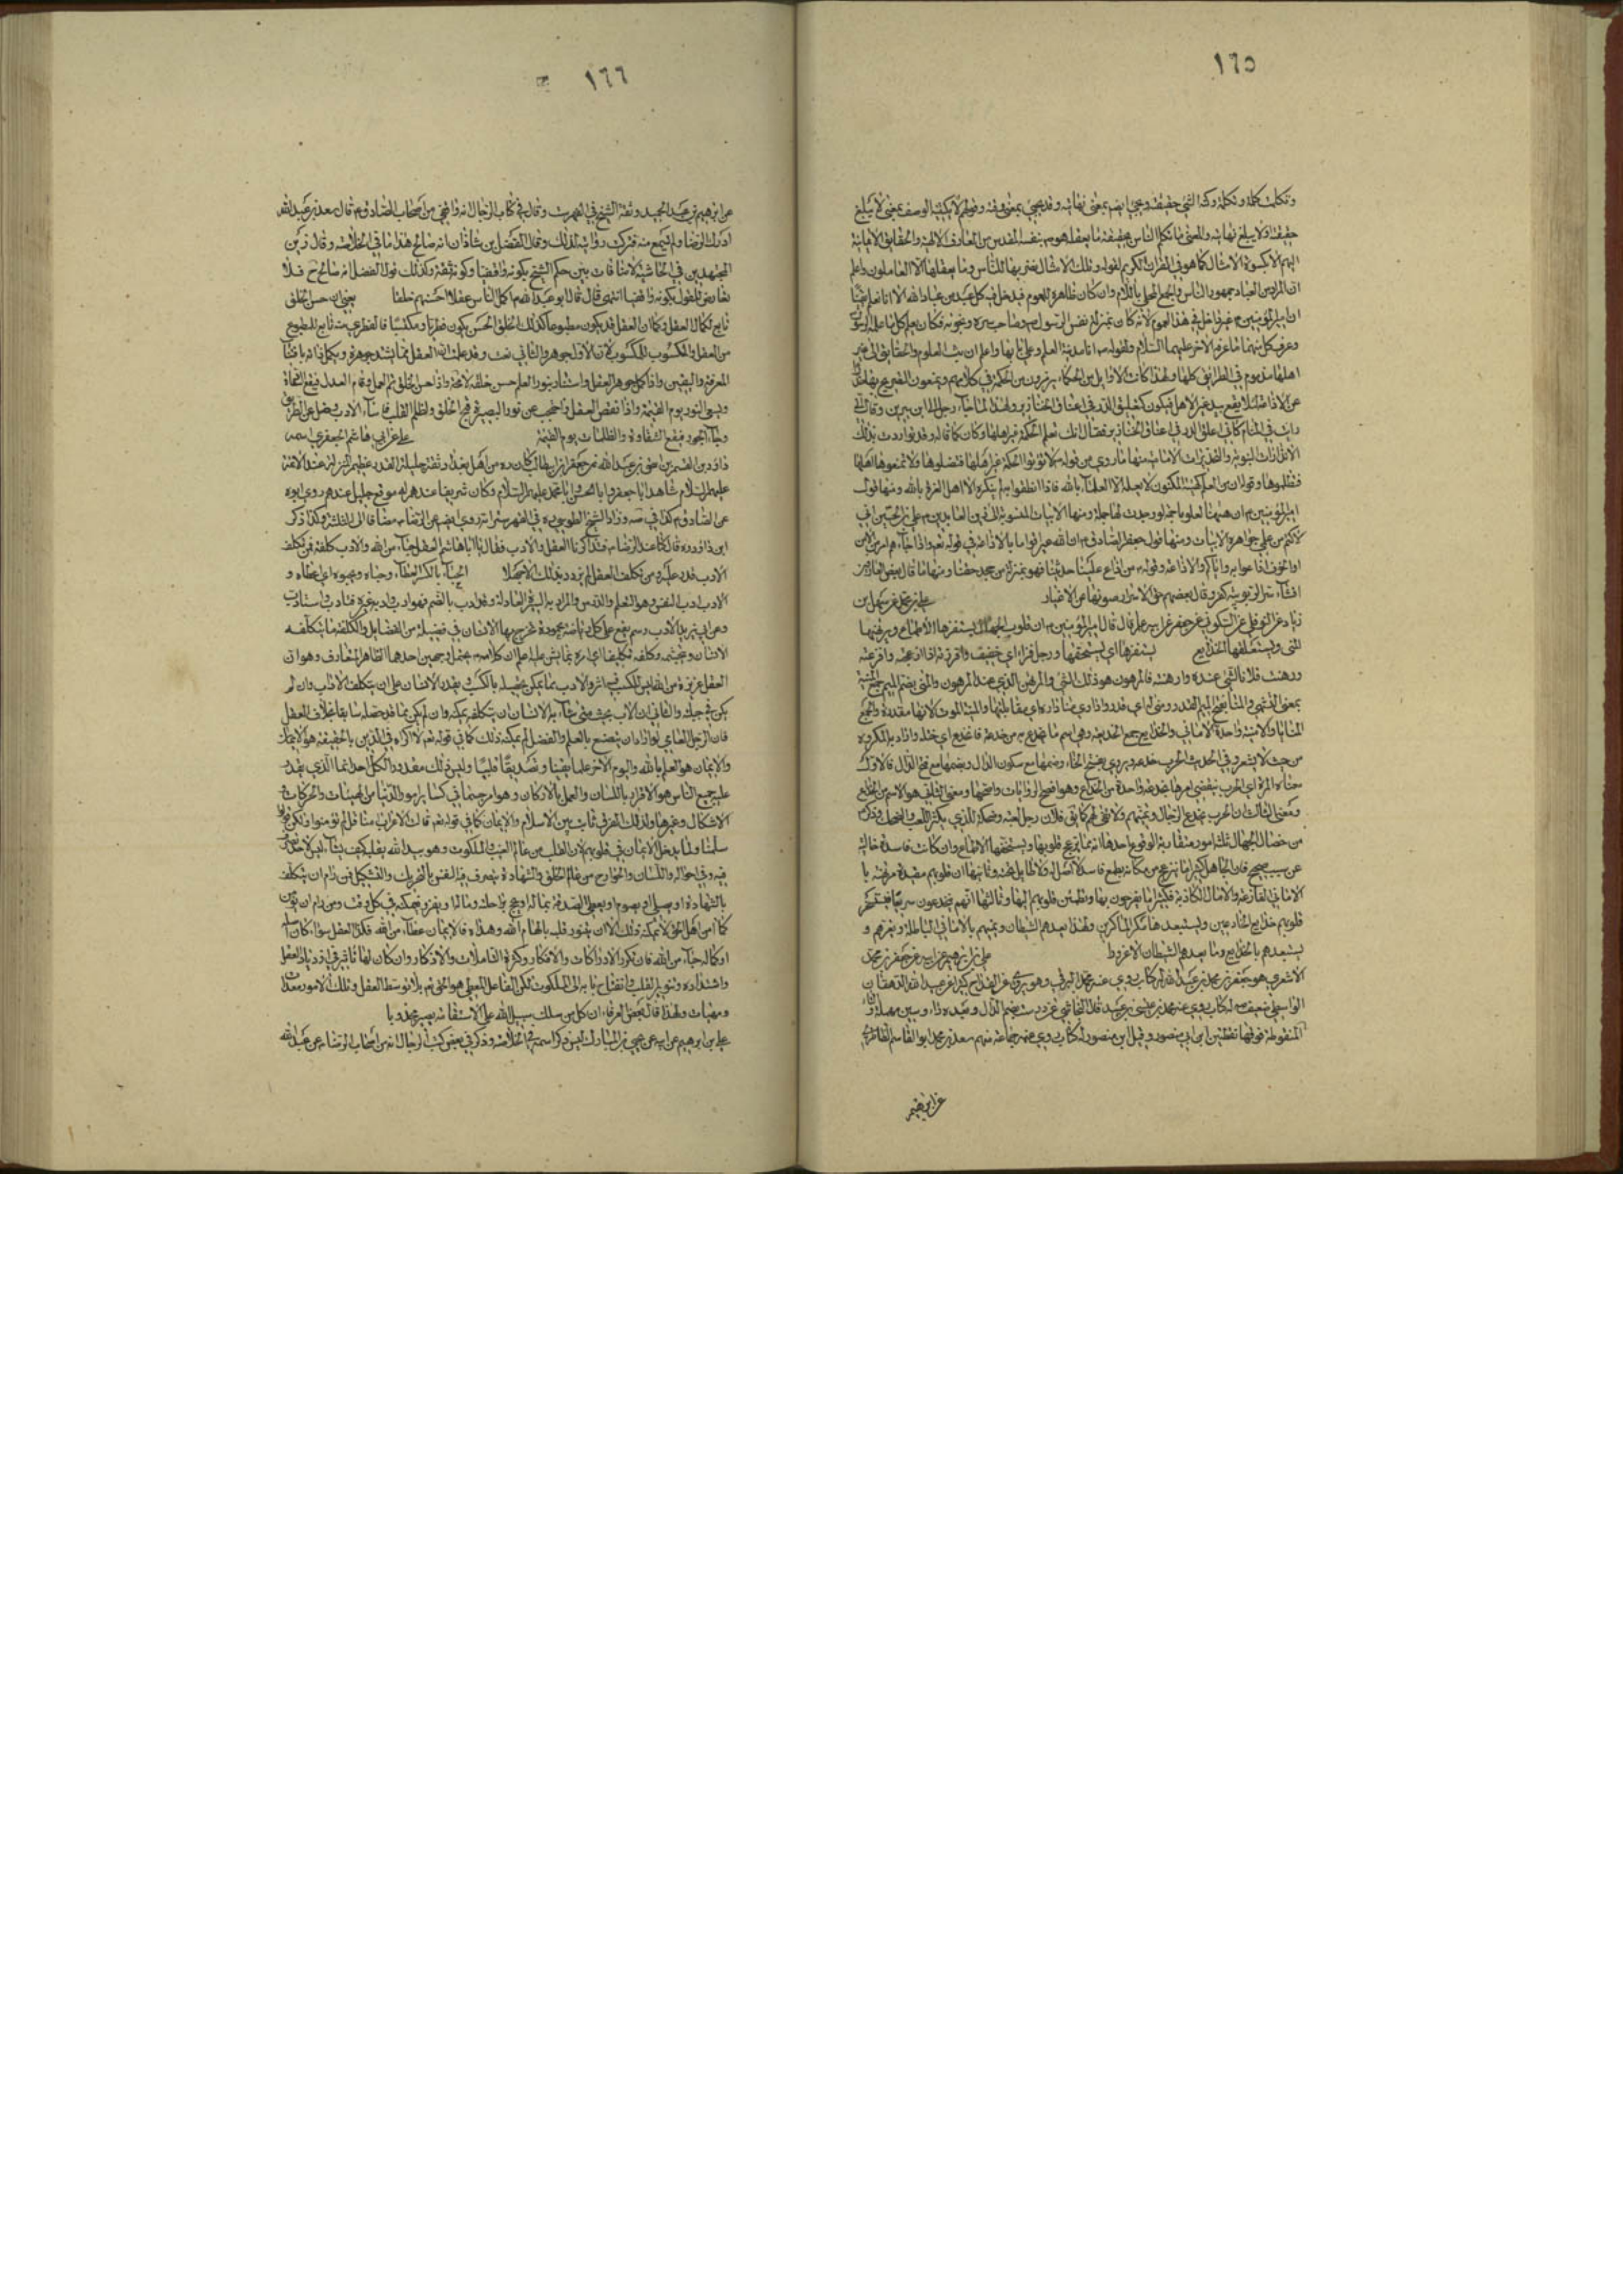 ١٦٥
وتكلمت كلمة وتكلمة وكنه الشي حقيقته ويجي ايضم بمعنى نهايته وقد يجي بمعنى وقته وقولهم لا يكتنهه الوصف بمعنى لا يبلغ
حقيقته اولا يبلغ نهايته والمعنى ما تكلم الناس بحقيقة ما يعقله هو م بنفسه المقدس من المعارف الالهية والحقايق الايمانية
اليهم الا بكسوة الامثال كما هو في القران الكريم لقوله وتلك الامثال نضربها للناس وما يعقلها الا العالمون واعلم
ان المراد من العباد جمهور الناس والجمع المحلى باللام وان كان ظاهره العموم فيدخل فيه كل عبد من عباد الله الا انا نعلم يقينا
ان امير المؤمنين م غير داخل في هذا العموم لانه كان بمنزلة نفس الرسول ص وصاحب سره ونجوته فكان يعلم كل ما علمه الرسول
وعرف كل منهما ما عرفه الاخر عليهما السلام ولقوله ص انا مدينة العلم وعلي بابها واعلم ان بث العلوم والحقايق الى غير
اهلها مذموم في الطرايق كلها ولهذا كانت الاوايل من الحكماء يرمزون من الحكمة في كلامهم ويمنعون التصريح بها
عن الاذاعة لئلا يقع بيد غير الاهل فيكون كتعليق الدر في اعناق الخنازير ولهذا لما جاء رجل الى ابن سيرين وقال اني
رايت في المنام كاني اعلق الدر في اعناق الخنازير فقال انك تعلم الحكمة غير اهلها وكان كما قال وقد تواردت بذلك
الانذارات النبوية والتحذيرات الامامية منها ما روي من قوله ص لا تؤتوا الحكمة غير اهلها فتضلوها ولا تمنعوها اهلها
فتظلموها وقوله ان من العلم كهيئة المكنون لا يعلمه الا العلماء بالله فاذا نطقوا به لم ينكره الا اهل الغرة بالله ومنها قول
امير المؤمنين م ان ههنا لعلوما جمة لو وجدت لها حملة ومنها الابيات المنسوبة الى زين العابدين م علي بن الحسين اني
لاكتم من علمي جواهره الابيات ومنها قول جعفر الصادق م ان الله عير قوما بالاذاعة في قوله تعه واذا جاءهم امر من الامن
او الخوف اذاعوا به واياكم والاذاعة وقوله م من اذاع علينا حديثنا فهو بمنزلة من جحد حقنا ومنها ما قال بعض العارفين
افشاء سر الربوبية كفر وقال بعضهم حق الاسرار صونها عن الاغيار علي بن محمد عن سهل بن
زياد عن النوفلي عن السكوني عن جعفر عن ابيه م قال قال امير المؤمنين م ان قلوب الجهال تستفزها الاطماع وترتهنها
المنى وتستعلقها الخدايع يستفزها اي يستخفها ورجل فز اي خفيف وافزرته اذا ازعجته وافزعته
ورهنت فلانا الشي عنده وارهنته فالمرهون هو ذلك الشي والمرتهن الذي عنده المرهون والمنى بضم الميم جمع المنية
بمعنى التمني
المنايا والامنية واحدة الاماني والخدايع جمع الخديعة وهي اسم ما يخدع به من خدعه فانخدع اي ختله واراد به المكروه
من حيث لا يشعر وفي الحديث الحرب خدعة يروي بفتح الخاء وضمها مع سكون الدال وبضمها مع فتح الدال فالاول
معناه المرة اي الحرب ينقضي امرها بخدعة واحدة من الخداع وهو افصح الروايات واصحها ومعنى الثاني هو الاسم من الخداع
ومعنى الثالث ان الحرب تخدع الرجال وتمنيهم ولا تفي لهم كما يق فلان رجل لعبة وضحكة للذي يكثر اللعب والضحك
من خصال الجهال ثلثة امور متقاربة الوقوع احدها انه مما يزعج قلوبها ويستخفها الاطماع وان كانت فاسدة خالية
عن سبب صحيح فان الجاهل كثيرا ما ينزعج من مكانه بطمع فاسد لا اصل له ولا طايل تحته وثانيها ان قلوبهم مقيدة مرتهنة با
الاماني الفارغة والامال الكاذبة فكثيرا ما يفرحون بها وتطمئن قلوبهم اليها وثالثها انهم يخدعون سريعا
قلوبهم خدايع الخادعين ويستعبدها مكر الماكرين ولهذا يعدهم الشيطان ويمنيهم بالاماني الباطلة ويغرهم و
يستعبدهم بالخدايع وما يعدهم الشيطان الا غرورا علي بن ابرهيم عن ابيه عن جعفر بن محمد
الاشعري هو جعفر بن محمد بن عبيد الله له كتاب يروي عنه محمد البرقي وهو يروي عن القداح كثيرا عن عبيد الله الدهقان
الواسطي ضعيف له كتاب يروي عنه محمد بن عيسى بن عبيد قاله النجاشي عن درست بضم الدال وبعده راء وسين مهملة
المنقوطة فوقها نقطتين ابن ابي منصور وقيل ابن منصور له كتاب يروي عنه جماعة منهم سعد بن محمد ابو القاسم الطاطري
عن ابرهيم
١٦٦
عن ابرهيم بن عبد الحميد وثقه الشيخ في الفهرست وقال في كتاب الرجال انه واقفي من اصحاب الصادق م قال سعد بن عبد الله
ادرك الرضا م ولم يسمع منه فتركت روايته لذلك وقال الفضل بن شاذان انه صالح هذا ما في الخلاصة وقال زين
المجتهدين في الحاشية لا منافات بين حكم الشيخ بكونه واقفيا وكونه ثقة وكذلك قول الفضل انه صالح فلا
يعارض القول بكونه واقفيا انتهى قال قال ابو عبد الله م اكمل الناس عقلا احسنهم خلقا يعني ان حسن الخلق
تابع لكمال العقل وكما ان العقل قد يكون مطبوعا كذلك الخلق الحسن يكون فطريا ومكتسبا فالفطري منه تابع للمطبوع
من العقل والمكتسوب للمكسوب لان الاول جوهر والثاني نعت وقد علمت ان العقل مما يشتد جوهره ويكمل ذاته باقتناء
المعرفة واليقين واذا كمل جوهر العقل واستنار بنور العلم حسن خلقه لا محة واذا حسن الخلق تم العمل وقام العدل فيقع النجاة
ويسعى النور يوم القيمة واذا نقص العقل واحتجب عن نور البصيرة قبح الخلق واظلم القلب فاساء الادب وضل عن الطريق
وجاء الجور فيقع الشقاوة والظلمات يوم القيمة علي عن ابي هاشم الجعفري اسمه
داود بن القسم بن اسحق بن عبد الله بن جعفر بن ابي طالب كان ره من اهل بغداد ثقة جليل القدر عظيم المنزلة عند الائمة
عليهم السلام شاهد ابا جعفر وابا الحسن وابا محمد عليهم السلام وكان شريفا عندهم له موقع جليل عندهم روي ابوه
عن الصادق م كذا في صه وزاد الشيخ الطوسي ره في الفهرست انه روي ايضم عن الرضا م مضافا الى الثلثة وكذا ذكر
ابن داود ره قال كنا عند الرضا م فتذاكرنا العقل والادب فقال يا ابا هاشم العقل حباء من الله والادب كلفة فمن تكلف
الادب قدر عليه ومن تكلف العقل لم يزدد بذلك الا جهلا الحباء بالكسر العطاء وحباه ويحبوه اي اعطاه و
الادب ادب النفس وهو التعلم والدرس
وعن ابي زيد الادب اسم يقع على كل رياضة محمودة يتخرج بها الانسان في فضيلة من الفضايل والكلفة ما يتكلفه
الانسان ويتجشمه وكلفه تكليفا اي امره بما يشق عليه اعلم ان كلامه م يحتمل وجهين احدهما الظاهر المتعارف وهو ان
العقل غريزة من الله ليس للكسب فيه اثر والادب مما يمكن تحصيله بالكسب وبقدر الانسان على ان يتكلف الاداب وان لم
يكن في جبلته والثاني ان الادب بحيث متى شاء به الانسان ان يتكلفه يمكنه وان لم يكن مما قد حصله سابقا بخلاف العقل
فان الرجل العامي لو اراد ان يتصنع بالعلم والفضل لم يمكنه ذلك كما في قوله تعه لا اكراه في الدين بالحقيقة هو الايمان
والايمان هو العلم بالله واليوم الاخر علما يقينا وتصديقا قلبيا وليس ذلك مقدورا لكل احد انما الذي يقدر
عليه جميع الناس هو الاقرار باللسان والعمل بالاركان وهو امر جسماني كسائر امور الدنيا من الهيئات والحركات
الاشكال وغيرها ولذلك الفرق ثابت بين الاسلام والايمان كما في قوله تعه قالت الاعراب امنا قل لم تؤمنوا ولكن قولوا
اسلمنا ولما يدخل الايمان في قلوبكم لان القلب من عالم الغيب والملكوت وهو بيد الله يقلبه كيف يشاء ليس لاحد تصرف
فيه وفي احواله واللسان والجوارح من عالم الخلق والشهادة يتصرف فيه النفس بالتحريك والتشكيل فمن رام ان يتكلف
بالشهادة او يصلي او يصوم او يعطي الصدقة بماله او يحج براحلته
كما امن اهل الحق لا يمكنه ذلك الا ان يتنور قلبه بالهام الله وهداه فالايمان عطاء من الله فكذا العقل سواء كان
او كماله حباء من الله فان تكرر الادراكات والافكار وكثرة التاملات والاذكار وان كان لها تاثير في ازدياد العقل
واشتداده وتنوير القلب وانفتاح بابه الى الملكوت لكن الفاعل المعطي هو الحق تعه بلا توسط العقل وتلك الامور معدات
ومهيات ولهذا قال بعض العرفاء ان كل من سلك سبيل الله على الاستقامة يصير مجذوبا
علي بن ابرهيم عن ابيه عن يحيى بن المبارك ليس ذكر اسمه في الخلاصة وذكر في بعض كتب الرجال انه من اصحاب الرضا م عن عبد الله